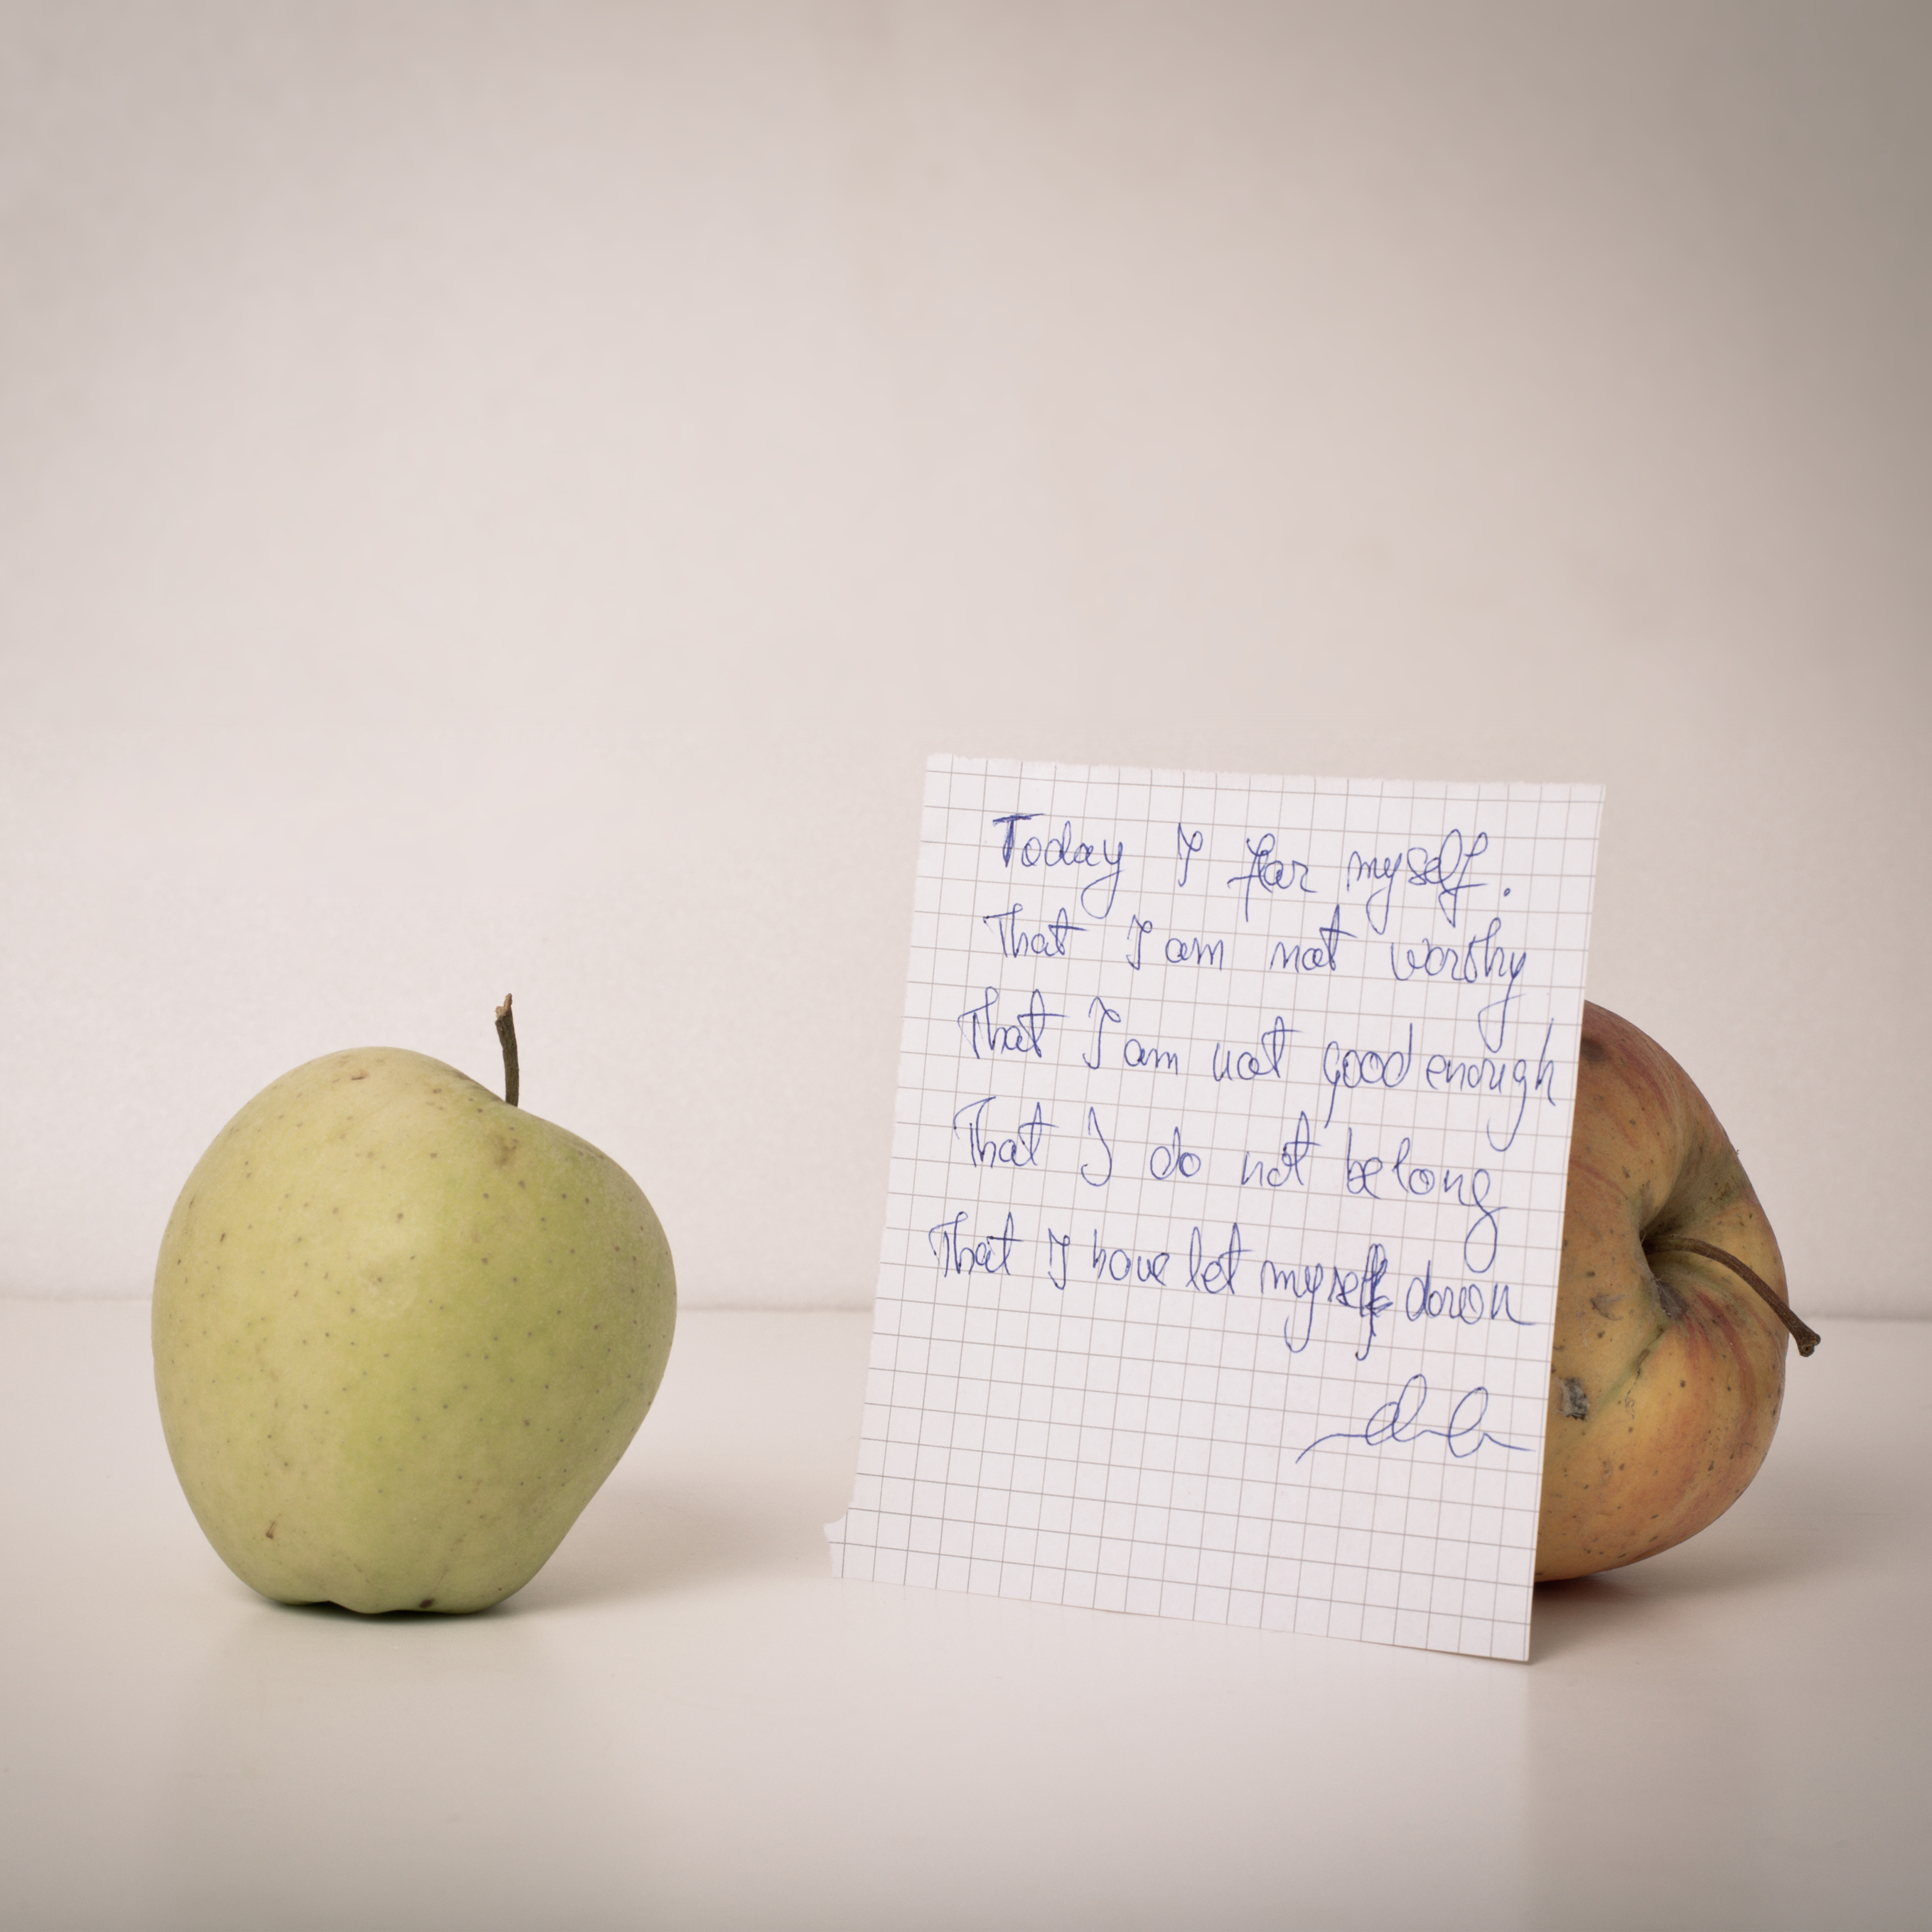 Today I fear myself.
That I am not worthy
That I am not good enough
That I do not belong
That I have let myself down